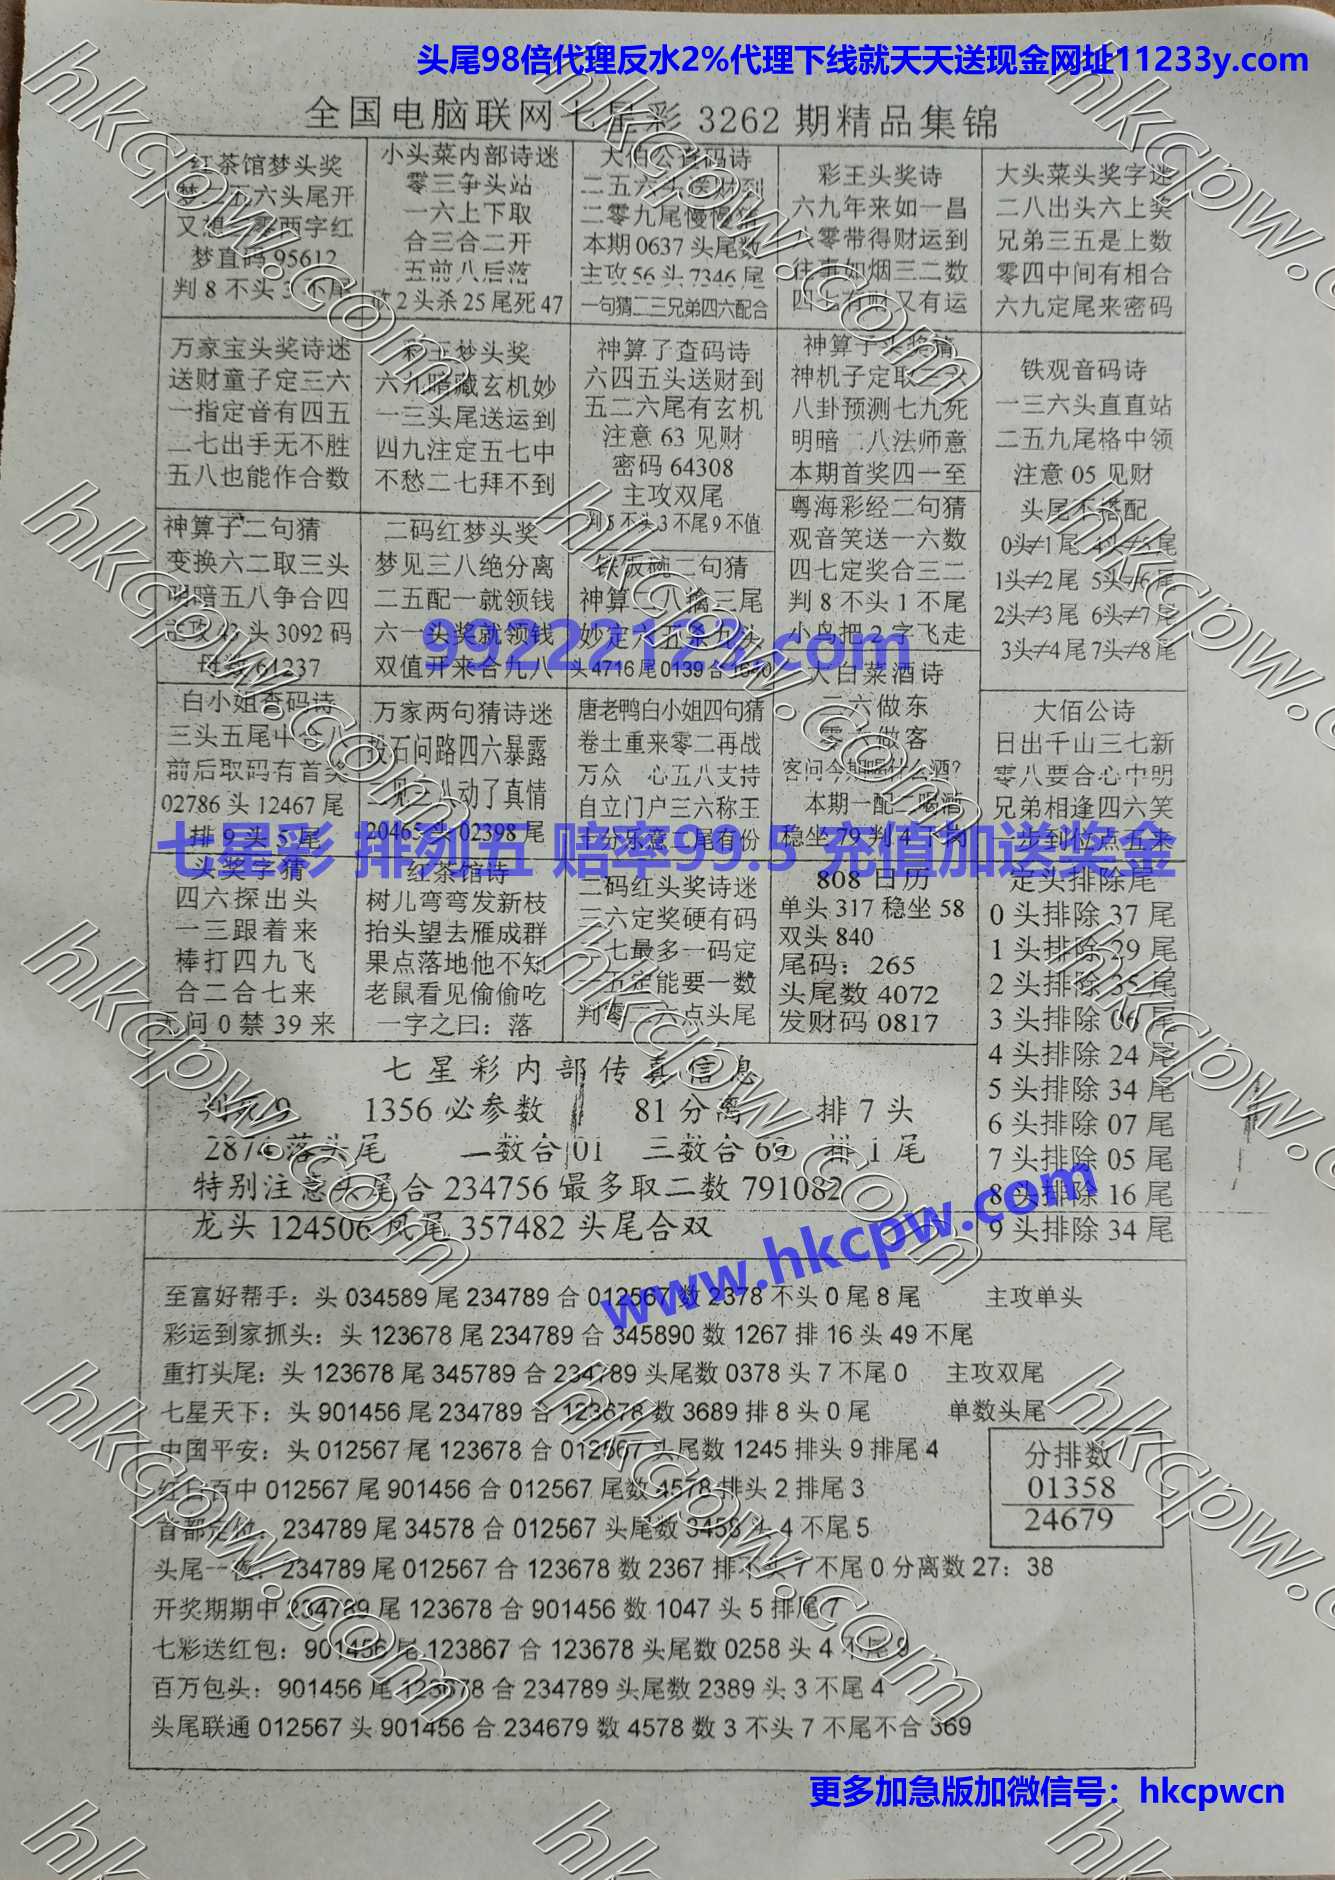 头尾98倍代理反水2%代理下线就天天送现金网址11233y.com
全国电脑联网七星彩 3262 期精品集锦
红茶馆梦头奖
六头尾开
又想 零两字红
梦直码 95612
判 8 不头 5 不尾
小头菜内部诗迷
零三争头站
一六上下取
合三合二开
五前八后落
攻 2 头杀 25 尾死 47
大伯公查码诗
二五六头送财到
二零九尾慢慢猜
本期 0637 头尾数
主攻 56 头 7346 尾
一句猜二三兄弟四六配合
彩王头奖诗
六九年来如一昌
零带得财运到
往事如烟三二数
四七有财又有运
大头菜头奖字迷
二八出头六上奖
兄弟三五是上数
零四中间有相合
六九定尾来密码
万家宝头奖诗迷
送财童子定三六
一指定音有四五
二七出手无不胜
五八也能作合数
彩王梦头奖
六九暗藏玄机妙
一三头尾送运到
四九注定五七中
不愁二七拜不到
神算了查码诗
六四五头送财到
五二六尾有玄机
注意 63 见财
密码 64308
主攻双尾
判 5 不头 3 不尾 9 不值
神算子头奖猜
神机子定取三六
八卦预测七九死
明暗二八法师意
本期首奖四一至
铁观音码诗
一三六头直直站
二五九尾格中领
注意 05 见财
头尾不搭配
0头≠1 尾 4头≠5 尾
1头≠2 尾 5头≠6 尾
2头≠3 尾 6头≠7 尾
3头≠4 尾 7头≠8 尾
神算子二句猜
变换六二取三头
明暗五八争合四
主攻 43 头 3092 码
母数 61237
二码红梦头奖
梦见三八绝分离
二五配一就领钱
六一头奖就领钱
双值开来合九八
铁饭碗二句猜
神算二八擒三尾
妙定六五杀九头
头 4716 尾 0139 合 1640
粤海彩经二句猜
观音笑送一六数
四七定奖合三二
判 8 不头 1 不尾
小鸟把 2 字飞走
9922212x.com
白小姐查码诗
三头五尾中合八
前后取码有首奖
02786 头 12467 尾
排 9 头 5 尾
万家两句猜诗迷
投石问路四六暴露
二见三八动了真情
20465 头 02398 尾
唐老鸭白小姐四句猜
卷土重来零二再战
万众 心五八支持
自立门户三六称王
十分乐意二尾有份
大白菜酒诗
二六做东
零六做客
客问今期喝什么酒?
本期一配二喝酒
稳坐 79 判 4 下岗
大佰公诗
日出千山三七新
零八要合心中明
兄弟相逢四六笑
一步到位点五来
七星彩 排列五 赔率99.5 充值加送奖金
头奖字猜
四六探出头
一三跟着来
棒打四九飞
合二合七来
天问 0 禁 39 来
红茶馆诗
树儿弯弯发新枝
抬头望去雁成群
果点落地他不知
老鼠看见偷偷吃
一字之曰：落
二码红头奖诗迷
三六定奖硬有码
七最多一码定
五定能要一数
判零二六点头尾
808 日历
单头 317 稳坐 58
双头 840
尾码：265
头尾数 4072
发财码 0817
定头排除尾
0 头排除 37 尾
1 头排除 29 尾
2 头排除 35 尾
3 头排除 06 尾
4 头排除 24 尾
5 头排除 34 尾
6 头排除 07 尾
7 头排除 05 尾
8 头排除 16 尾
9 头排除 34 尾
七星彩内部传真信息
1356 必参数 81 分离 排 7 头
落头尾 二数合 01 三数合 69 排 1 尾
特别注意头尾合 234756 最多取二数 791082
龙头 124506 凤尾 357482 头尾合双
www.hkcpw.com
至富好帮手：头 034589 尾 234789 合 012567 数 2378 不头 0 尾 8 尾 主攻单头
彩运到家抓头：头 123678 尾 234789 合 345890 数 1267 排 16 头 49 不尾
重打头尾：头 123678 尾 345789 合 234789 头尾数 0378 头 7 不尾 0 主攻双尾
七星天下：头 901456 尾 234789 合 123678 数 3689 排 8 头 0 尾 单数头尾
中国平安：头 012567 尾 123678 合 012567 头尾数 1245 排头 9 排尾 4
百中 012567 尾 901456 合 012567 尾数 4578 排头 2 排尾 3
首都定位：234789 尾 34578 合 012567 头尾数 3458 头 4 不尾 5
头尾一夜：234789 尾 012567 合 123678 数 2367 排不头 7 不尾 0 分离数 27：38
开奖期期中 234789 尾 123678 合 901456 数 1047 头 5 排尾 7
七彩送红包：901456 尾 123867 合 123678 头尾数 0258 头 4 不尾 9
百万包头：901456 尾 123678 合 234789 头尾数 2389 头 3 不尾 4
头尾联通 012567 头 901456 合 234679 数 4578 数 3 不头 7 不尾不合 369
分排数
01358
24679
更多加急版加微信号：hkcpwcn